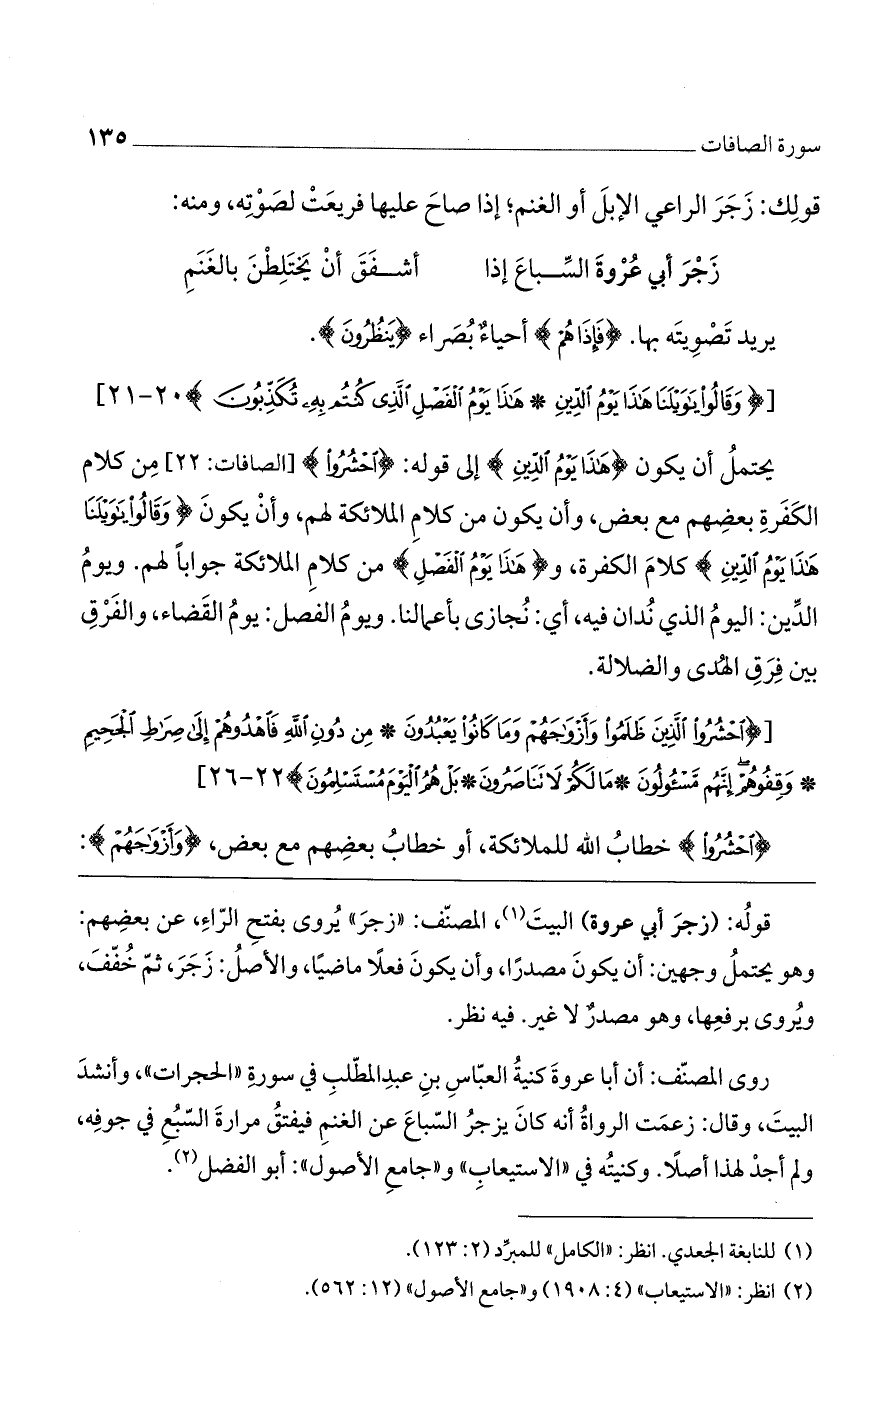 سورة الصافات ١٣٥
قولِك: زَجَرَ الراعي الإبلَ أو الغنم؛ إذا صاحَ عليها فريعَتْ لصَوْتِه، ومنه:
زَجْرَ أبي عُرْوةَ السِّباعَ إذا أشفَقَ أنْ يَختَلِطْنَ بالغَنَمِ
يريد تَصْوِيتَه بها. ﴿فَإِذَا هُمْ﴾ أحياءٌ بُصَراء ﴿يَنظُرُونَ﴾.
[﴿وَقَالُواْ يَٰوَيْلَنَا هَٰذَا يَوْمُ ٱلدِّينِ * هَٰذَا يَوْمُ ٱلْفَصْلِ ٱلَّذِى كُنتُم بِهِۦ تُكَذِّبُونَ﴾ ٢٠-٢١]
يحتملُ أن يكون ﴿هَٰذَا يَوْمُ ٱلدِّينِ﴾ إلى قوله: ﴿ٱحْشُرُواْ﴾ [الصافات: ٢٢] مِن كلام
الكَفَرةِ بعضِهم مع بعض، وأن يكون من كلامِ الملائكة لهم، وأنْ يكونَ ﴿وَقَالُواْ يَٰوَيْلَنَا
هَٰذَا يَوْمُ ٱلدِّينِ﴾ كلامَ الكفرة، و﴿هَٰذَا يَوْمُ ٱلْفَصْلِ﴾ من كلامِ الملائكة جواباً لهم. ويومُ
الدِّين: اليومُ الذي نُدان فيه، أي: نُجازى بأعمالنا. ويومُ الفصل: يومُ القَضاء، والفَرْقِ
بين فِرَقِ الهُدى والضلالة.
[﴿ٱحْشُرُواْ ٱلَّذِينَ ظَلَمُواْ وَأَزْوَٰجَهُمْ وَمَا كَانُواْ يَعْبُدُونَ * مِن دُونِ ٱللَّهِ فَٱهْدُوهُمْ إِلَىٰ صِرَٰطِ ٱلْجَحِيمِ
* وَقِفُوهُمْ ۖ إِنَّهُم مَّسْـُٔولُونَ * مَا لَكُمْ لَا تَنَاصَرُونَ * بَلْ هُمُ ٱلْيَوْمَ مُسْتَسْلِمُونَ﴾ ٢٢-٢٦]
﴿ٱحْشُرُواْ﴾ خطابُ الله للملائكة، أو خطابُ بعضِهم مع بعض، ﴿وَأَزْوَٰجَهُمْ﴾:
قولُه: (زجرَ أبي عروة) البيتَ(١)، المصنّف: «زجرَ» يُروى بفتحِ الرّاءِ، عن بعضِهم:
وهو يحتملُ وجهين: أن يكونَ مصدرًا، وأن يكونَ فعلًا ماضيًا، والأصلُ: زَجَرَ، ثمّ خُفّفَ،
ويُروى برفعِها، وهو مصدرٌ لا غير. فيه نظر.
روى المصنّف: أن أبا عروةَ كنيةُ العبّاسِ بنِ عبدِالمطّلبِ في سورةِ «الحجرات»، وأنشدَ
البيتَ، وقال: زعمَت الرواةُ أنه كانَ يزجرُ السّباعَ عن الغنمِ فيفتقُ مرارةَ السّبُعِ في جوفِه،
ولم أجدْ لهذا أصلًا. وكنيتُه في «الاستيعابِ» و«جامعِ الأصول»: أبو الفضل(٢).
(١) للنابغة الجعدي. انظر: «الكامل» للمبرِّد (٢: ١٢٣).
(٢) انظر: «الاستيعاب» (٤: ١٩٠٨) و«جامع الأصول» (١٢: ٥٦٢).